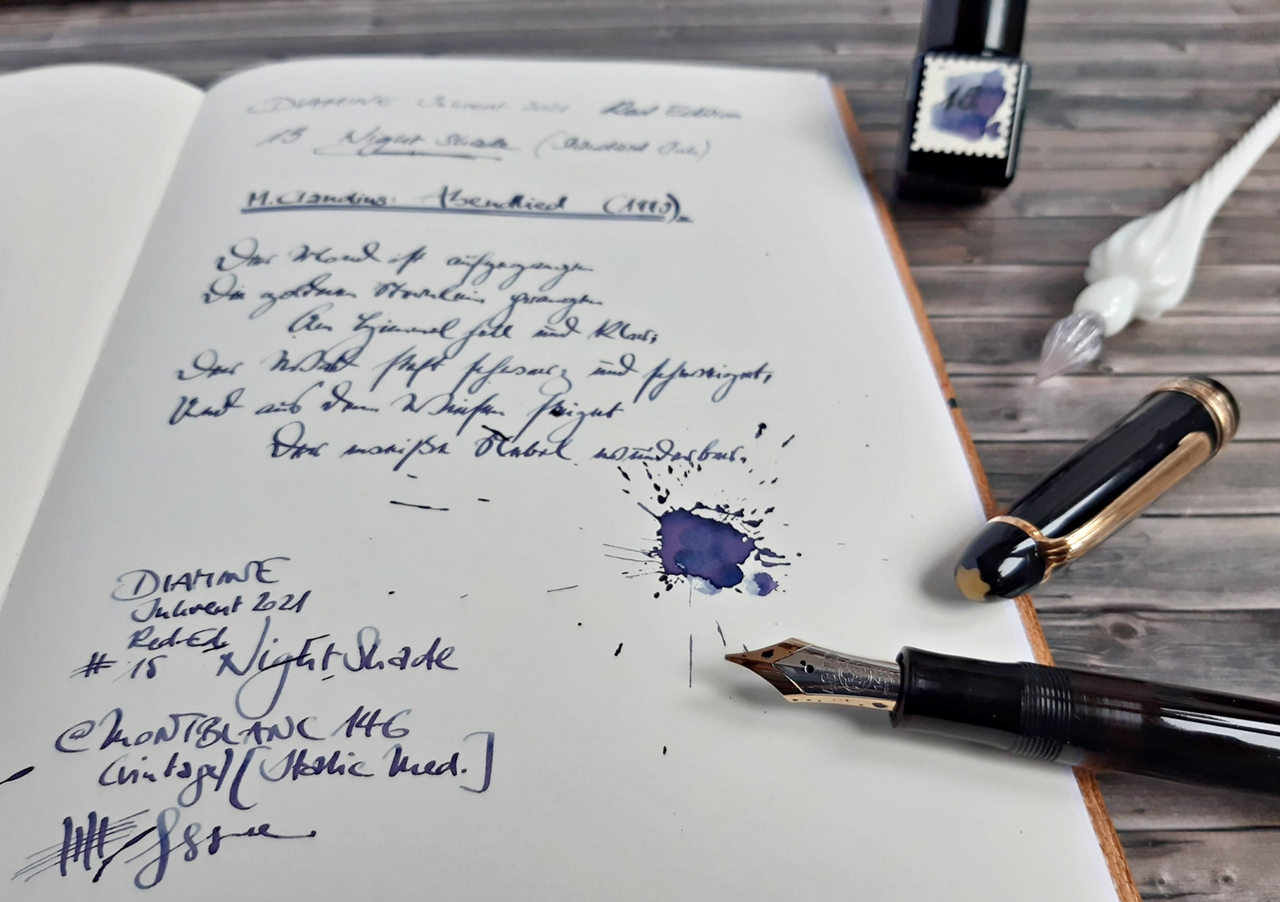 DIAMINE Inkvent 2021 Red Edition
15 Night Shade (Standard Ink)
M. Claudius: Abendlied (1773)
Der Mond ist aufgegangen
Die goldnen Sternlein prangen
Am Himmel hell und klar;
Der Wald steht schwarz und schweiget,
Und aus den Wiesen steiget
Der weiße Nebel wunderbar.
DIAMINE
Inkvent 2021
Red-Ed.
# 15 Night Shade
@ MONTBLANC 146
(vintage) [Italic Med.]